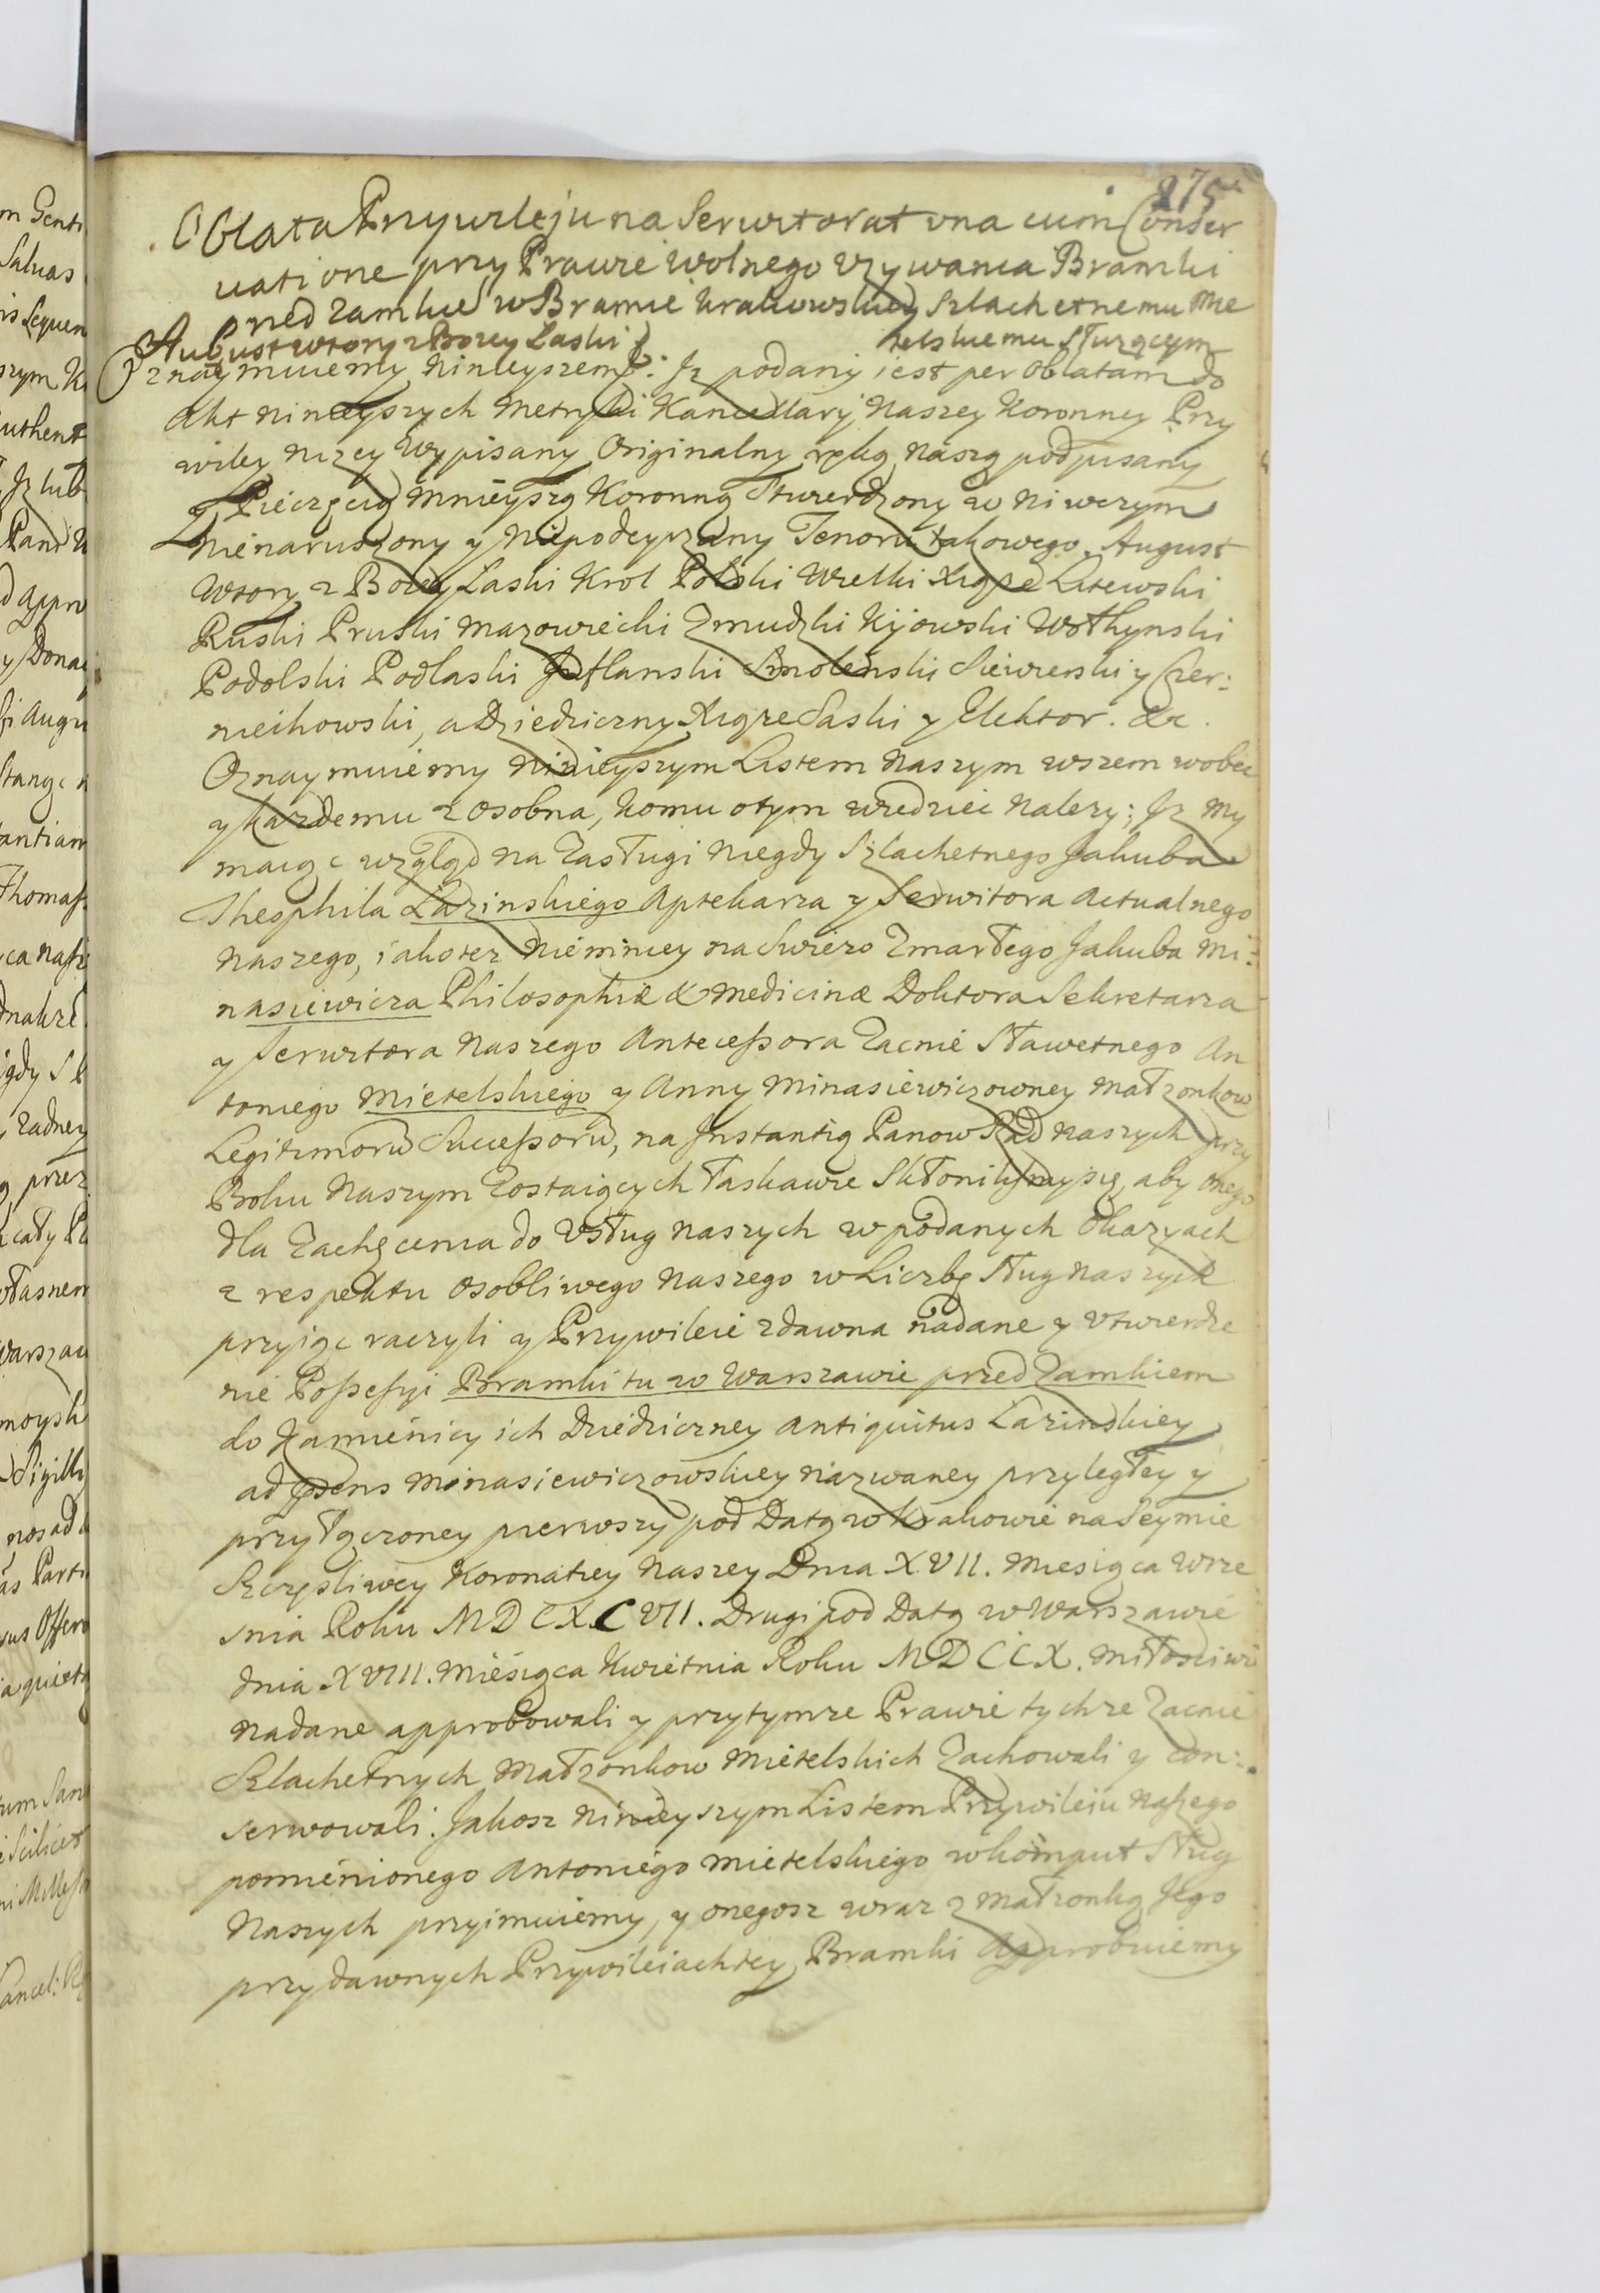 275
Oblata Przywileju na Serwitorat vna cum Conser
uatione przy Prawie wolnego vzywania Bramki
przed Zamkiē w Bramie Krakowskiey Szlachetnemu Mie
telskiemu Służącym
August wtory z Bozey Łaski
Oznaymuiemy ninieyszem: Jz podany iest per Oblatam do
Akt ninieyszych Metryki Kancellaryi Naszey Koronney Przy
wiley nizey Wypisany Originalny ręką naszą podpisany
y Pieczęcią Mnieyszą Koronną Stwierdzony w Niwczym
Nienaruszony y Niepodeyrzany Tenoru takowego. August
Wtory z Bozey Łaski Krol Polski Wielki Xiąze Litewski
Ruski Pruski Mazowiecki Zmudzki Kijowski Wołhynski
Podolski Podlaski Inflanski Smolenski Siewierski y Czer:
niechowski, a Dziedziczny Xiąze Saski y Elektor. &c.
Oznaymuiemy Ninieyszym Listem Naszym wszem wobec
y kazdemu z osobna, komu o tym wiedziec Nalezy; Jz My
maiąc wzgląd na Zasługi niegdy Szlachetnego Jakuba
Theophila Łazinskiego Aptekarza y Serwitora Actualnego
Naszego, iakotez Niemniey na Swiezo Zmarłego Jakuba Mi:
nasiewicza Philosophiæ & Medicinæ Doktora Sekretarza
y Serwitora Naszego Antecessora Zacnie Sławetnego An
toniego Mietelskiego y Anny Minasiewiczowney Małzonkow
Legitimorū Successorū, na Jnstantią Panow Rad Naszych przy
Boku Naszym Zostaiących łaskawie Skłonilismy się, aby onego
dla Zachęcenia do Vsług Naszych w podanych Okazyach
z respektu Osobliwego Naszego w Liczbę Sług Naszych
przyiąc raczyli y Przywileie zdawna nadane y Vtwierdze
nie Possessyi Bramki tu w Warszawie przed Zamkiem
do Kamienicy ich Dziedziczney antiquitus Łazinskiey
ad præsens Minasiewiczowskiey Nazwaney przyległey y
przyłączoney pierwszy pod Datą w Krakowie na Seymie
Szczęśliwey Koronatiey Naszey Dnia XVII. Miesiąca Wrze
snia Roku MDCXCVII. Drugi pod Datą w Warszawie
dnia XVIII. Miesiąca Kwietnia Roku MDCCX. Miłosciwie
Nadane approbowali y przytymze Prawie tychze Zacnie
Szlachetnych Małzonkow Mietelskich Zachowali y con:
serwowali. Jakosz Ninieyszym Listem Przywileiu Naszego
pomienionego Antoniego Mietelskiego w komput Sług
Naszych przyimuiemy, y onegosz wraz z Małzonką Jego
przy dawnych Przywileiach tey Bramki Approbuiemy